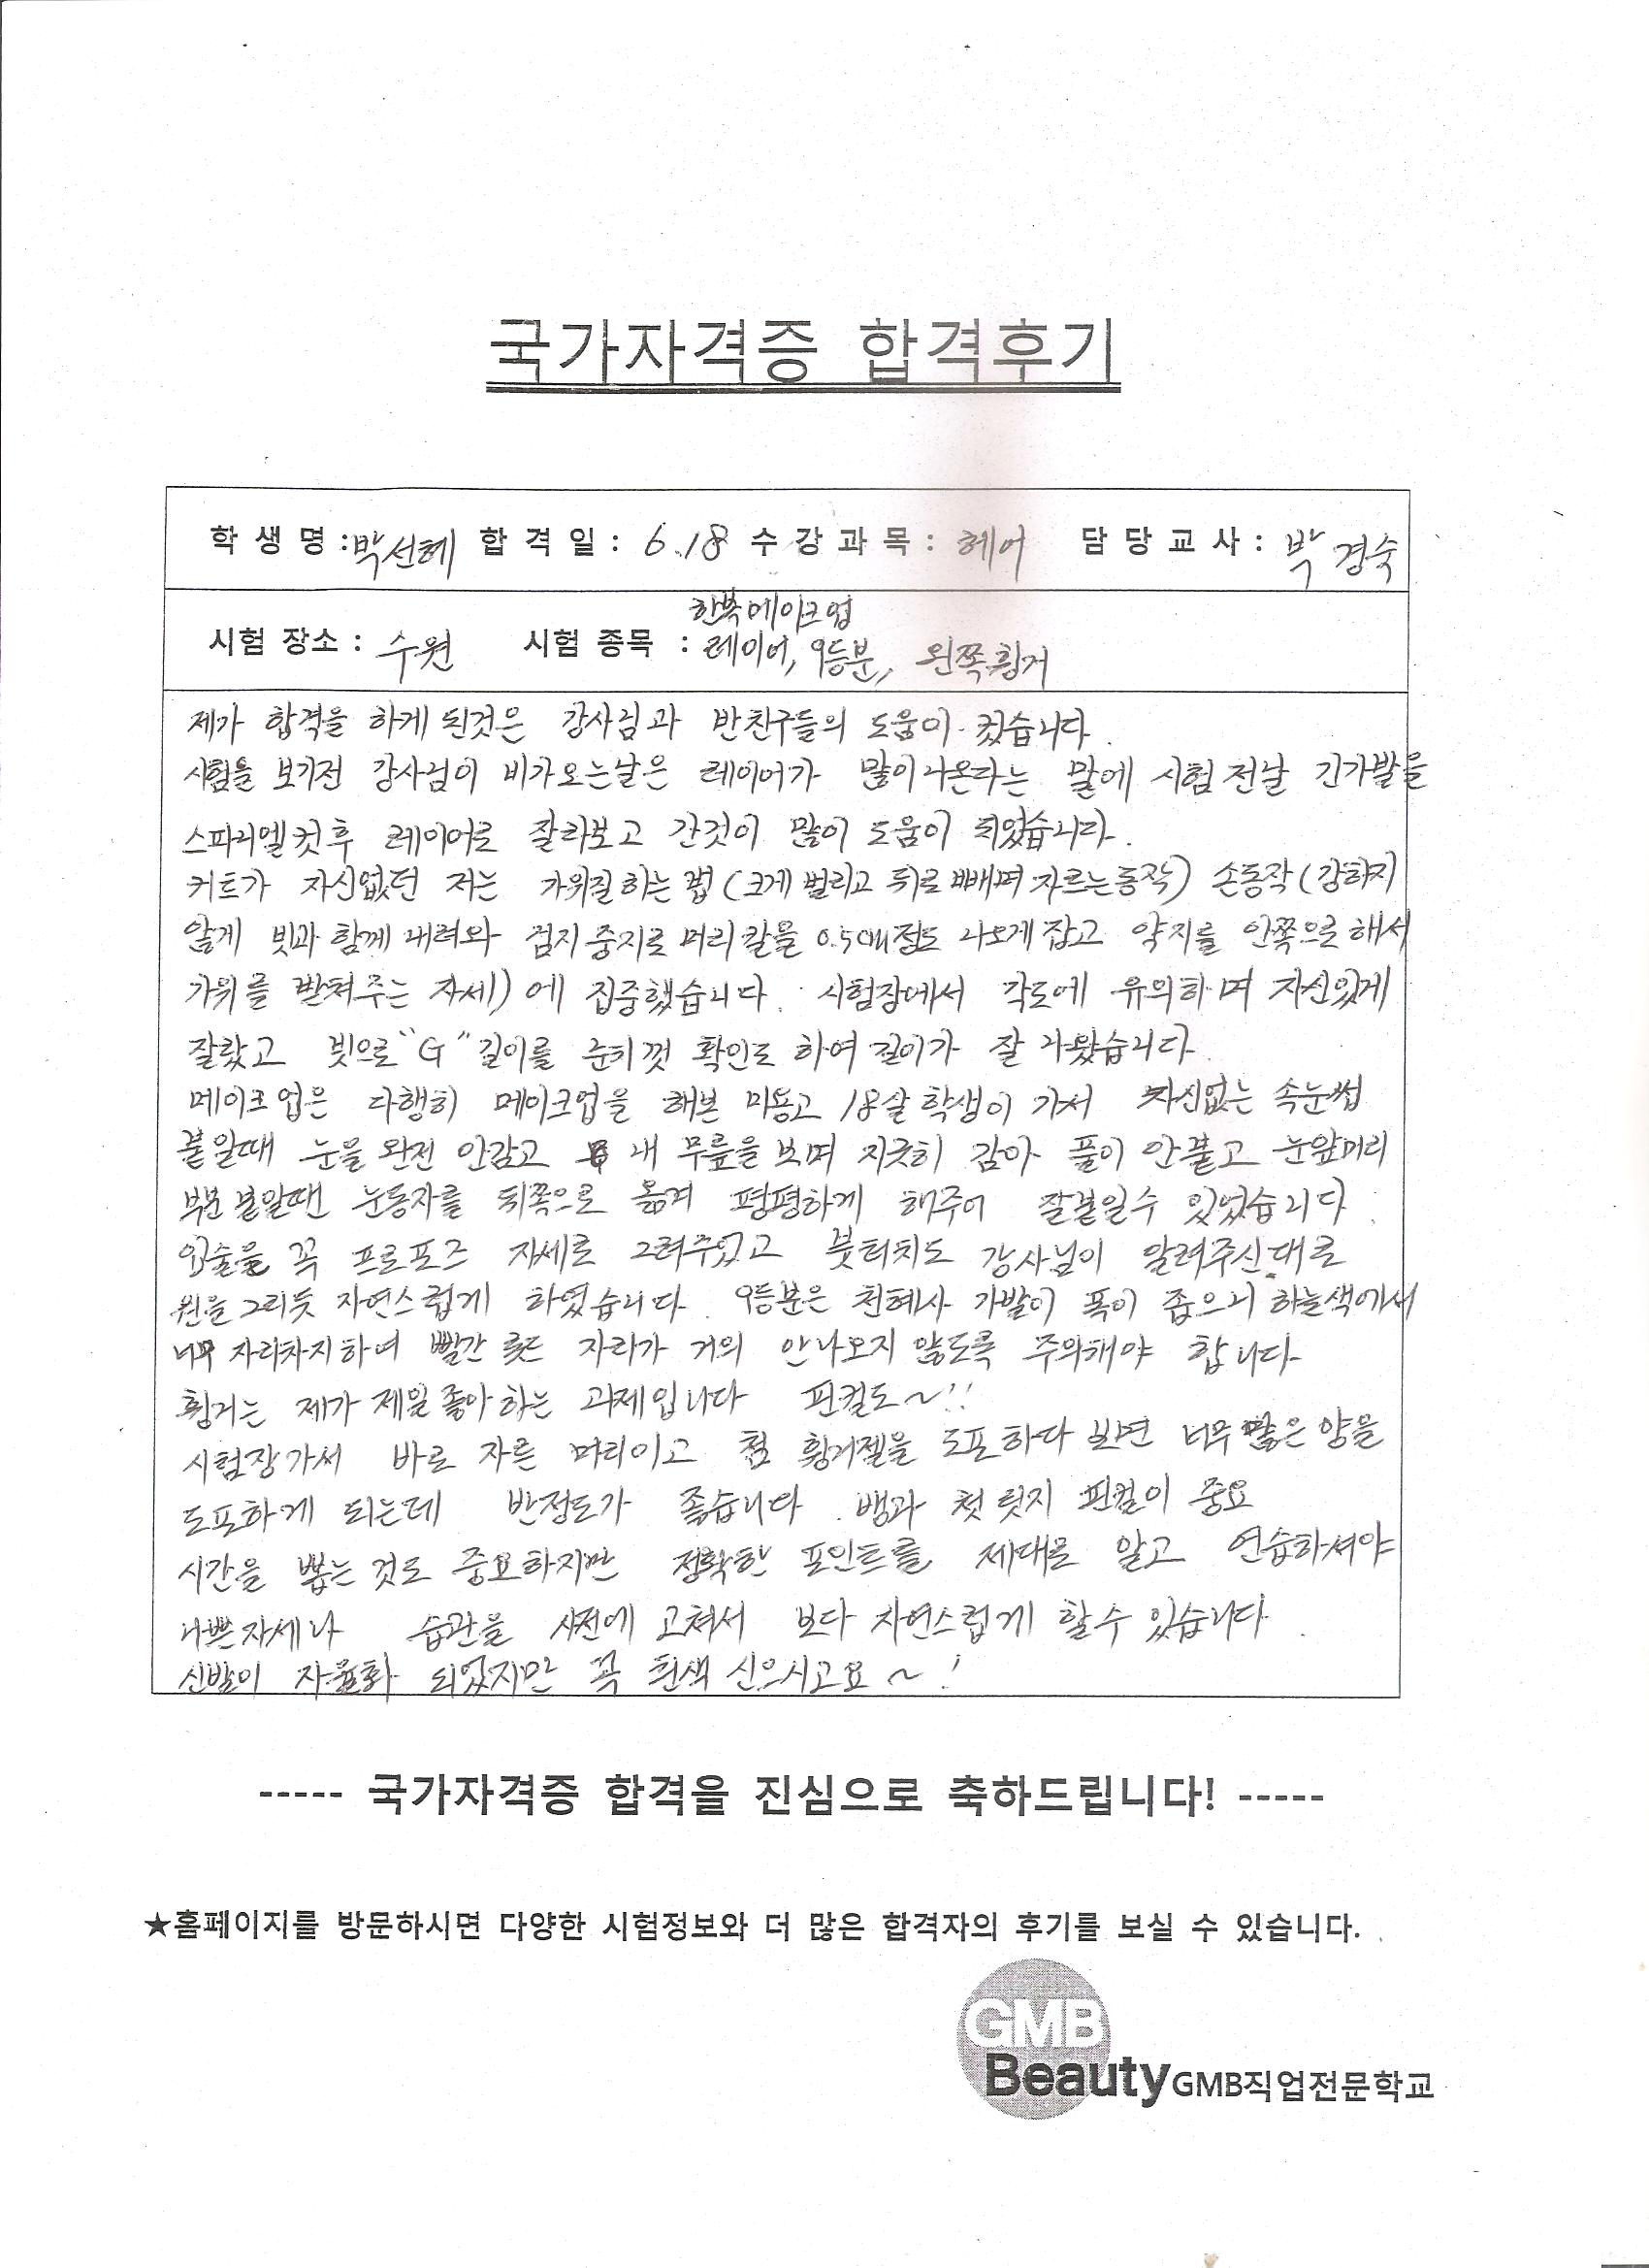 국가자격증 합격후기
학 생 명 : 박선혜 합 격 일 : 6.18 수 강 과 목 : 헤어 담 당 교 사 : 박경숙
한복메이크업
시험 장소 : 수원 시험 종목 : 레이어, 9등분, 왼쪽휭거
제가 합격을 하게 된것은 강사님과 반친구들의 도움이 컸습니다.
시험을 보기전 강사님이 비가오는날은 레이어가 많이나온다는 말에 시험 전날 긴가발을
스파니엘컷후 레이어로 잘라보고 간것이 많이 도움이 되었습니다.
커트가 자신없던 저는 가위질하는 법 (크게 벌리고 뒤로 빼며 자르는동작) 손동작 (강하지
않게 빗과 함께 내려와 검지중지로 머리칼을 0.5cm정도 나오게잡고 약지를 안쪽으로해서
가위를 받쳐주는 자세) 에 집중했습니다. 시험장에서 각도에 유의하며 자신있게
잘랐고 빗으로 "G" 길이를 눈치껏 확인도 하여 길이가 잘 나왔습니다.
메이크업은 다행히 메이크업을 해본 미용고 18살 학생이 가서 자신없는 속눈썹
붙일때 눈을 완전 안감고 내 무릎을 보며 지긋히 감아 풀이 안붙고 눈앞머리
부분 붙일땐 눈동자를 뒤쪽으로 옮겨 평평하게 해주어 잘붙일수 있었습니다.
입술을 꼭 프로포즈 자세로 그려주었고 붓터치도 강사님이 알려주신대로
원을그리듯 자연스럽게 하였습니다. 9등분은 천혜사 가발이 폭이 좁으니 하늘색에서
너무 자리차지하여 빨간 롯드 자리가 거의 안나오지 않도록 주의해야 합니다
휭거는 제가 제일좋아하는 과제입니다 핀컬도~!!
시험장가서 바로 자른 머리이고 첨 휭거젤을 도포하다 보면 너무많은 양을
도포하게 되는데 반정도가 좋습니다. 뱅과 첫릿지 핀컬이 중요
시간을 뽑는것도 중요하지만 정확한 포인트를 제대로 알고 연습하셔야
나쁜자세나 습관을 사전에 고쳐서 보다 자연스럽게 할수 있습니다.
신발이 자율화 되었지만 꼭 흰색 신으시고요~!
----- 국가자격증 합격을 진심으로 축하드립니다! -----
★홈페이지를 방문하시면 다양한 시험정보와 더 많은 합격자의 후기를 보실 수 있습니다.
GMB
Beauty GMB직업전문학교